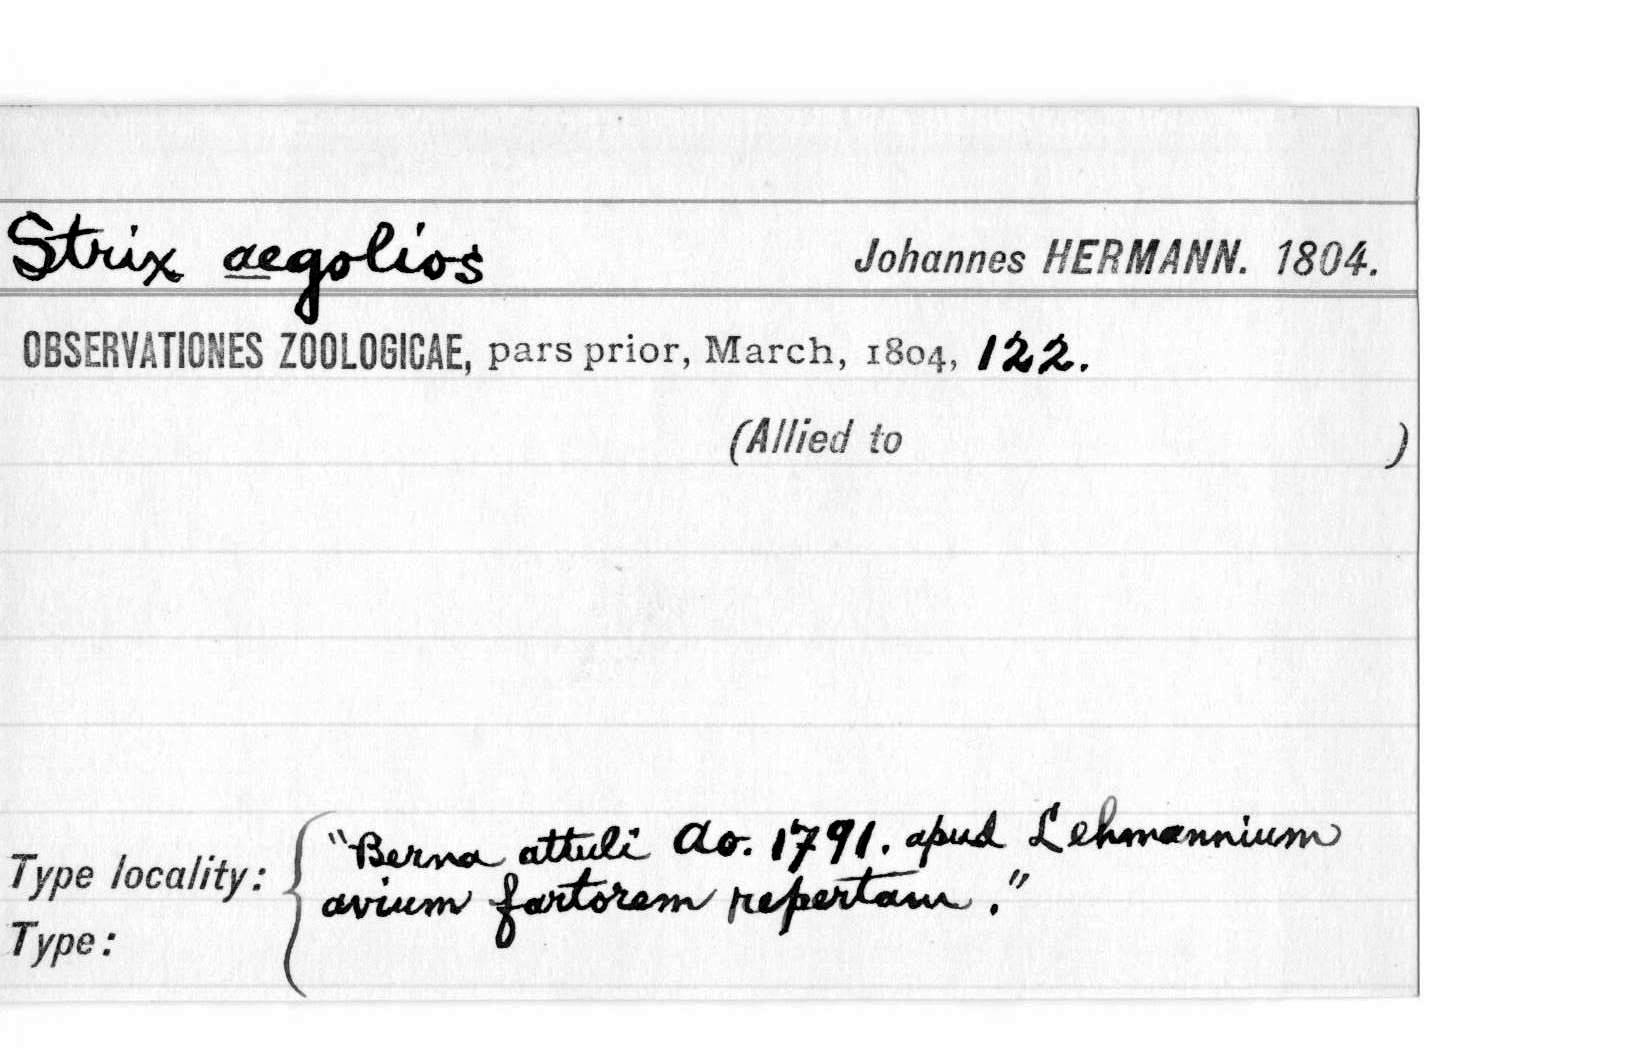 Strix aegolios Johannes HERMANN. 1804.
OBSERVATIONES ZOOLOGICAE, pars prior, March, 1804, 122.
(Allied to )
Type locality: "Berna attuli Ao. 1791. apud Lehmannium
avium fartorem repertam."
Type: